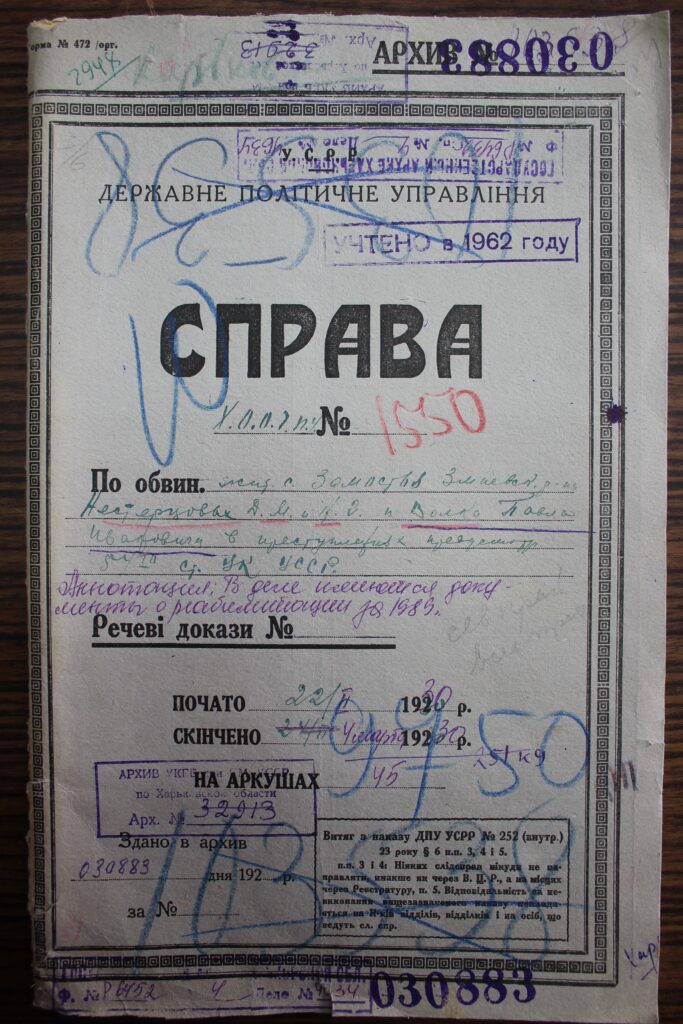 Форма № 472 /орг.
2948
АРХИВ №
030883
Арх. № 32913
У.С.Р.Р.
ДЕРЖАВНЕ ПОЛІТИЧНЕ УПРАВЛІННЯ
УЧТЕНО в 1962 году
СПРАВА
№ 1550
По обвин. жит. с. Замостья Змиевск. р-на
Нестерцовых Д. М. и и Волко Павла
Ивановича в преступлении предусмотр
ст. УК УССР.
Аннотация: В деле имеются доку-
менты о реабилитации за 1989г.
Речеві докази №
ПОЧАТО 22/II 1930 р.
СКІНЧЕНО 24/II 4 марта 1930 р.
НА АРКУШАХ 45
99-50
АРХИВ УКГБ
по Харьковской области
Арх. № 32913
Здано в архив
030883 дня 192 р.
за №
103528
Витяг з наказу ДПУ УСРР № 252 (внутр.)
23 року § 6 п.п. 3, 4 і 5.
п.п. 3 і 4: Ніяких слідсправ нікуди не на-
правляти, инакше як через В. Ц. Р., а на місцях
через Реєстратуру, п. 5. Відповідальність за не-
виконання вищезазначеного наказу поклада-
ється на Н-ків відділів, відділків і на осіб, що
ведуть сл. спр.
Ф. № Р6452 4 Дело № 4634
030883